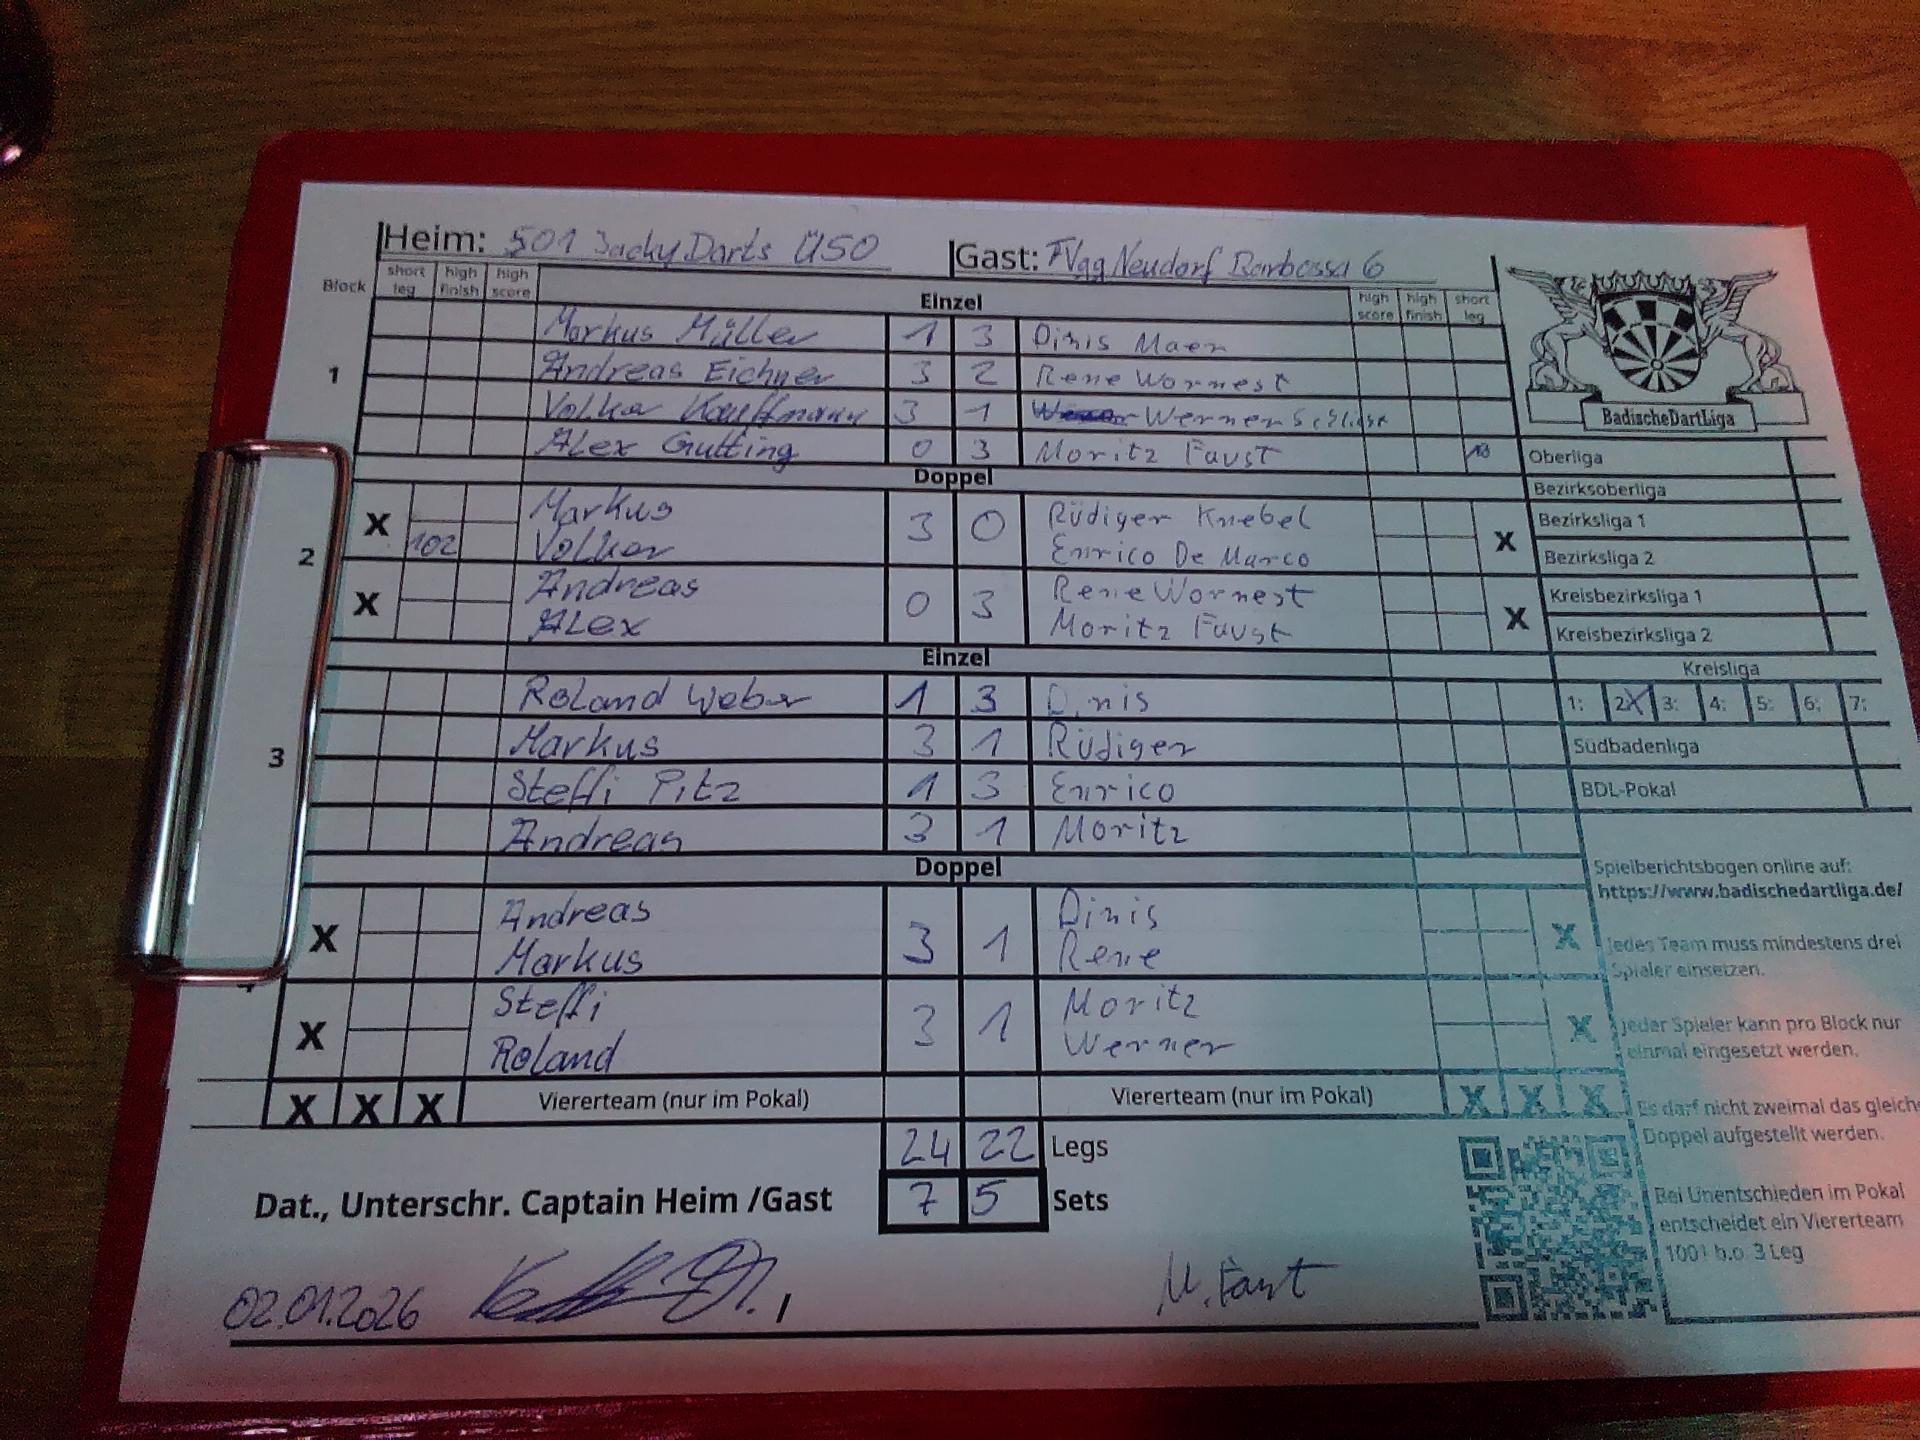 Heim: 501 Jacky Darts Ü50 Gast: FVgg Neudorf Barbossa 6
Block short leg high finish high score Einzel high score high finish short leg
1
Markus Müller 1 3 Dinis Maer
Andreas Eichner 3 2 Rene Wornest
Volker Kauffmann 3 1 Werner
Alex Gutting 0 3 Moritz Faust 18
BadischeDartLiga
Oberliga
Bezirksoberliga
Bezirksliga 1
Bezirksliga 2
Kreisbezirksliga 1
Kreisbezirksliga 2
Kreisliga
1: 2X 3: 4: 5: 6: 7:
Südbadenliga
BDL-Pokal
Doppel
2
X Markus 3 0 Rüdiger Knebel X
102 Volker Enrico De Marco
X Andreas 0 3 Rene Wornest X
Alex Moritz Faust
Einzel
3
Roland Weber 1 3 Dinis
Markus 3 1 Rüdiger
Steffi Pitz 1 3 Enrico
Andreas 3 1 Moritz
Doppel
X Andreas 3 1 Dinis X
Markus Rene
X Steffi 3 1 Moritz X
Roland Werner
X X X Viererteam (nur im Pokal) Viererteam (nur im Pokal) X X X
24 22 Legs
Dat., Unterschr. Captain Heim /Gast 7 5 Sets
02.01.2026 M. Faust
Spielberichtsbogen online auf:
https://www.badischedartliga.de/
Jedes Team muss mindestens drei
Spieler einsetzen.
Jeder Spieler kann pro Block nur
einmal eingesetzt werden.
Es darf nicht zweimal das gleiche
Doppel aufgestellt werden.
Bei Unentschieden im Pokal
entscheidet ein Viererteam
1001 b.o. 3 Leg